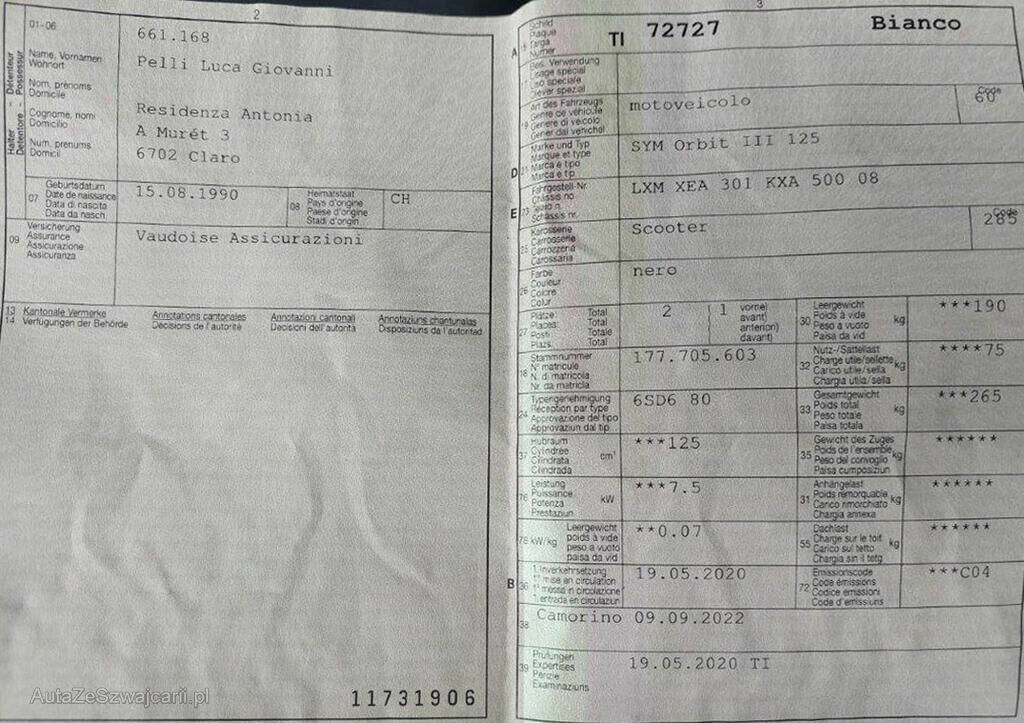 2
01-06
661.168
Halter - Détenteur
Detentore - Possessur
Name, Vornamen
Wohnort
Nom, prénoms
Domicile
Cognome, nomi
Domicilio
Num, prenums
Domicil
Pelli Luca Giovanni
Residenza Antonia
A Murét 3
6702 Claro
07
Geburtsdatum
Date de naissance
Data di nascita
Data da nasch.
15.08.1990
08
Heimatstaat
Pays d'origine
Paese d'origine
Stadi d'origin
CH
09
Versicherung
Assurance
Assicurazione
Assicuranza
Vaudoise Assicurazioni
13
14
Kantonale Vermerke
Verfügungen der Behörde
Annotations cantonales
Décisions de l'autorité
Annotazioni cantonali
Decisioni dell'autorità
Annotaziuns chantunalas
Disposiziuns da l'autoritad
AutaZeSzwajcarii.pl
11731906
3
A
15
Schild
Plaque
Targa
Numer
TI 72727 Bianco
Bes. Verwendung
Usage spécial
Uso speciale
Diever spezial
19
Art des Fahrzeugs
Genre de véhicule
Genere di veicolo
Gener dal vehichel
motoveicolo
Code
60
D
21
Marke und Typ
Marque et type
Marca e tipo
Marca e tip
SYM Orbit III 125
E
23
Fahrgestell-Nr.
Châssis no
Telaio n.
Schassis nr.
LXM XEA 301 KXA 500 08
25
Karosserie
Carrosserie
Carrozzeria
Carossaria
Scooter
Code
285
26
Farbe
Couleur
Colore
Colur
nero
27
Plätze: Total
Places: Total
Posti: Totale
Plazs: Total
2
1
vorne)
avant)
anteriori)
davant)
30
Leergewicht
Poids à vide
Peso a vuoto
Paisa da vid
kg
***190
18
Stammnummer
N° matricule
N. di matricola
Nr. da matricla
177.705.603
32
Nutz-/Sattellast
Charge utile/sellette
Carico utile/sella
Chargia utila/sella
kg
****75
24
Typengenehmigung
Réception par type
Approvazione del tipo
Approvaziun dal tip
6SD6 80
33
Gesamtgewicht
Poids total
Peso totale
Paisa totala
kg
***265
37
Hubraum
Cylindrée
Cilindrata
Cilindrada
cm³
***125
35
Gewicht des Zuges
Poids de l'ensemble
Peso del convoglio
Paisa cumposiziun
kg
******
76
Leistung
Puissance
Potenza
Prestaziun
kW
***7.5
31
Anhängelast
Poids remorquable
Carico rimorchiato
Chargia annexa
kg
******
78 kW/kg
Leergewicht
poids à vide
peso a vuoto
paisa da vid
**0.07
55
Dachlast
Charge sur le toit
Carico sul tetto
Chargia sin il tetg
kg
******
B
36
1. Inverkehrsetzung
1re mise en circulation
1a messa in circolazione
1. entrada en circulaziun
19.05.2020
72
Emissionscode
Code émissions
Codice emissioni
Code d'emissiuns
***C04
38
Camorino 09.09.2022
39
Prüfungen
Expertises
Perizie
Examinaziuns
19.05.2020 TI